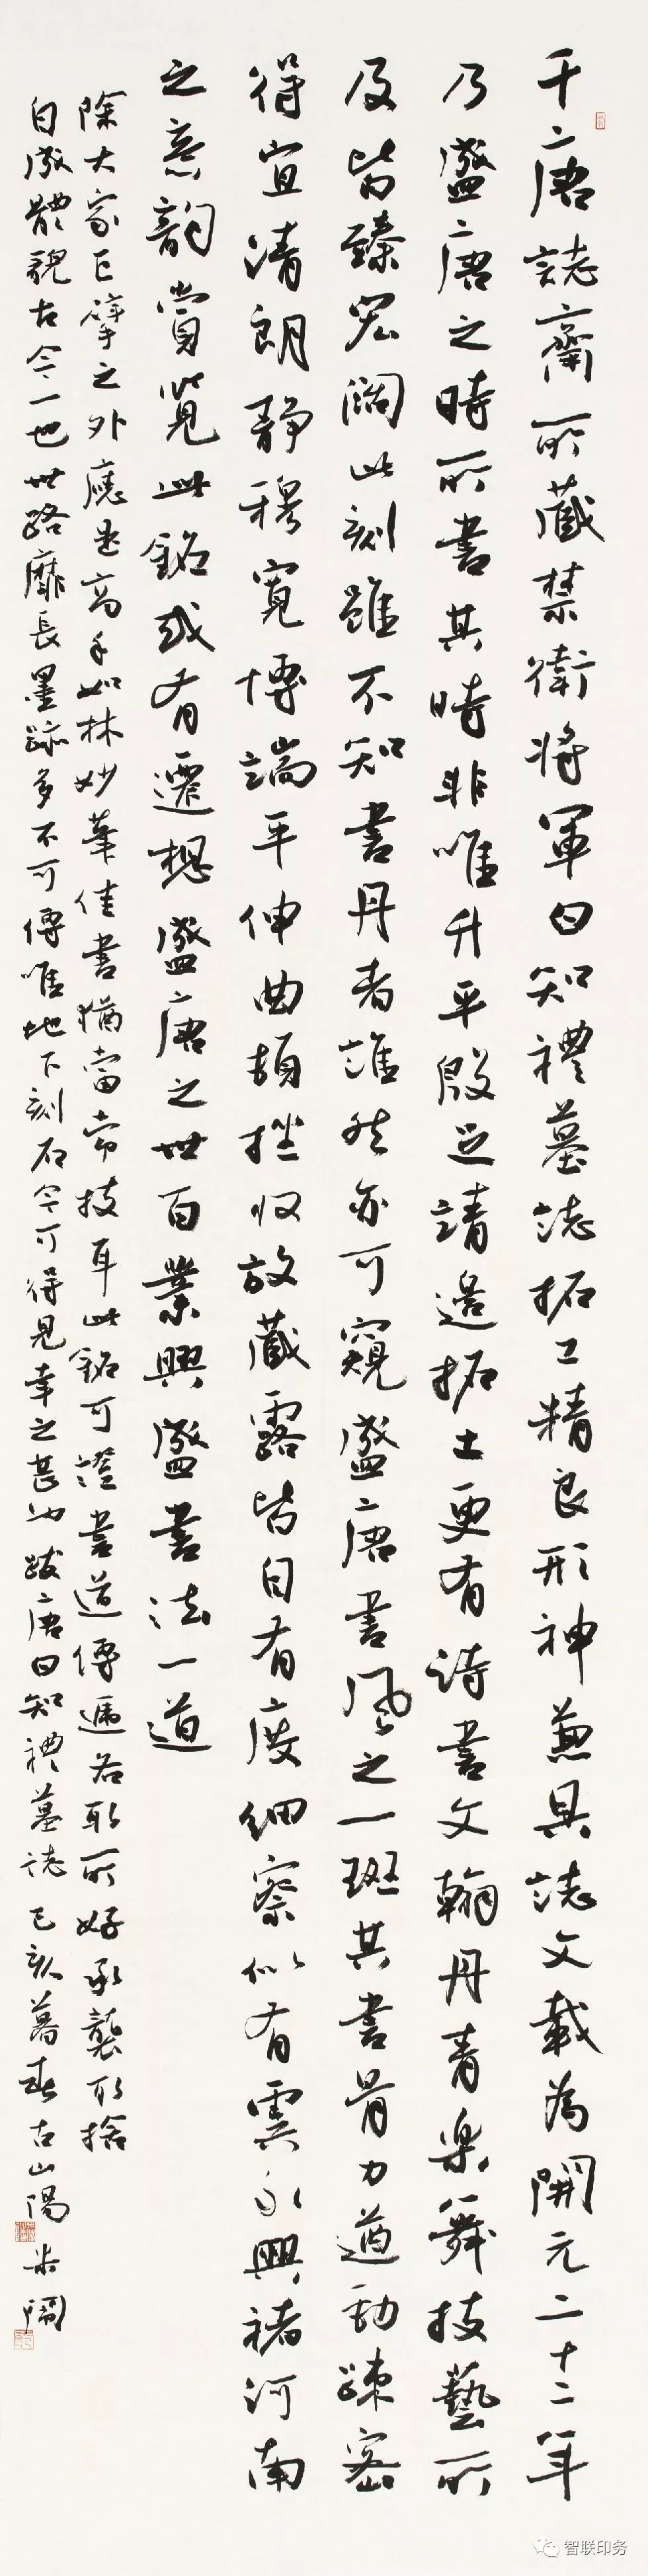 千唐誌齋所藏禁衛將軍白知禮墓誌拓工精良形神兼具誌文載為開元二十二年
乃盛唐之時所書其時非唯升平殷足靖邊拓土更有詩書文翰丹青樂舞技藝所
及皆臻宏闊此刻雖不知書丹者誰然亦可窺盛唐書風之一斑其書骨力遒勁疎密
得宜清朗靜穆寬博端平伸曲頓挫收放藏露皆自有度細察似有虞永興褚河南
之意韻賞覽此銘或有遷想盛唐之世百業興盛書法一道
除大家巨擘之外應是高手如林妙筆佳書猶當常技耳此銘可證書道傳遞各取所好承襲取捨
自成體貌古今一也世路靡長墨跡多不可傳唯地下刻石今可得見幸之甚也跋唐白知禮墓誌己亥暮春古山陽米鬧
智联印务